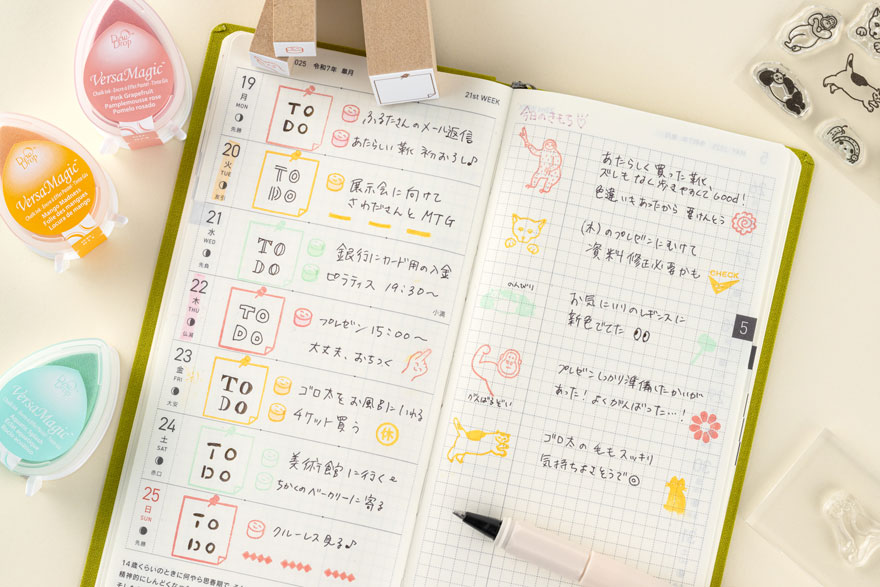 Dew Drop
VersaMagic
Pink Grapefruit
Pamplemousse rose
Pomelo rosado
Dew Drop
VersaMagic
Mango Madness
Folie des mangues
Locura de mango
Dew Drop
VersaMagic
025 令和7年 皐月
21st WEEK
19
月
MON
先勝
TO
DO
ふるたさんのメール返信
あたらしい靴 初おろし♪
20
火
TUE
友引
TO
DO
展示会に向けて
さわださんと MTG
21
水
WED
先負
TO
DO
銀行にカード用の入金
ピラティス 19:30〜
22
木
THU
仏滅
小満
TO
DO
プレゼン 15:00〜
大丈夫、おちつく
23
金
FRI
大安
TO
DO
ゴロ太をお風呂にいれる
チケット買う
休
24
土
SAT
赤口
TO
DO
美術館に行く
ちかくのベーカリーに寄る
25
日
SUN
先勝
TO
DO
クルーレス見る♪
14歳くらいのときに何やら思春期で
今日のきもち
あたらしく買った靴、
ズレもなく歩きやすくてGood!
色違いもあったから要けんとう
(木)のプレゼンにむけて
資料修正必要かも
CHECK
のんびり
お気に入りのレギンスに
新色でてた
5
プレゼンしっかり準備したかいが
あった! よくがんばった…!
ゴロ太の毛もスッキリ
気持ちよさそうで◎